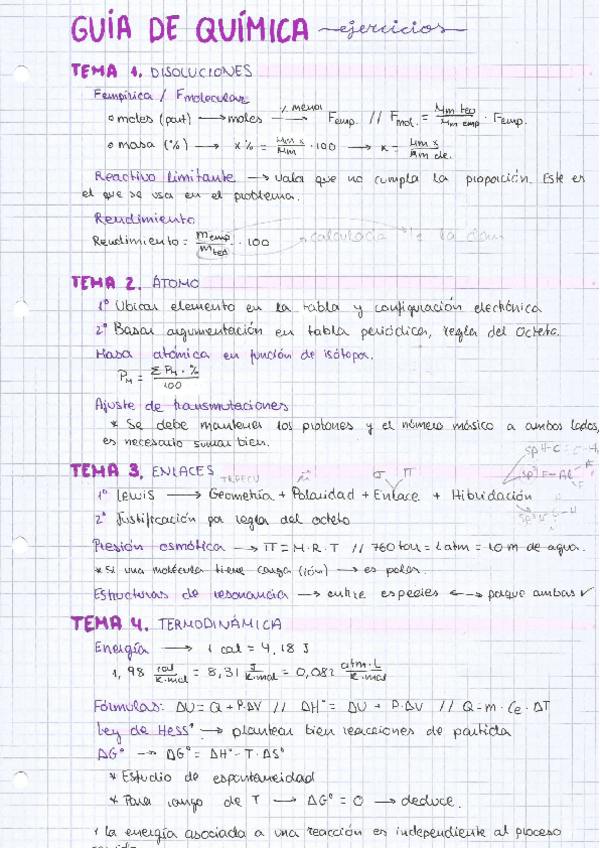 GUÍA DE QUÍMICA ejercicios
TEMA 1. DISOLUCIONES
Fempírica / Fmolecular
moles (part) → moles ÷ menor → Femp. // Fmol. = Mm teo / Mm emp · Femp.
masa (%) → x % = Mm x / Mm · 100 → x =
Reactivo limitante → valor que no cumpla la proporción. Este es
el que se usa en el problema.
Rendimiento
Rendimiento = memp / mteo · 100
TEMA 2. ÁTOMO
1º Ubicar elemento en la tabla y configuración electrónica
2º Basar argumentación en tabla periódica, regla del octeto.
Masa atómica en función de isótopo.
PM = Σ PM · % / 100
Ajuste de transmutaciones
* Se debe mantener los protones y el número másico a ambos lados,
es necesario sumar bien.
TEMA 3. ENLACES
σ π
1º Lewis → Geometría + Polaridad + Enlace + Hibridación
2º Justificación por regla del octeto
Presión osmótica → π = M · R · T // 760 torr = 1 atm = 10 m de agua.
* Si una molécula tiene carga (ión) → es polar.
Estructuras de resonancia → entre especies ↔ porque ambas ✓
TEMA 4. TERMODINÁMICA
Energía → 1 cal = 4,18 J
1,98 cal / K·mol = 8,31 J / K·mol = 0,082 atm·L / K·mol
Fórmulas: ΔU = Q + P·ΔV // ΔHº = ΔU + P·ΔV // Q = m · Ce · ΔT
Ley de Hess → plantear bien reacciones de partida
ΔGº → ΔGº = ΔHº - T·ΔSº
* Estudio de espontaneidad
* Para rango de T → ΔGº = 0 → deduce.
* la energía asociada a una reacción es independiente al proceso